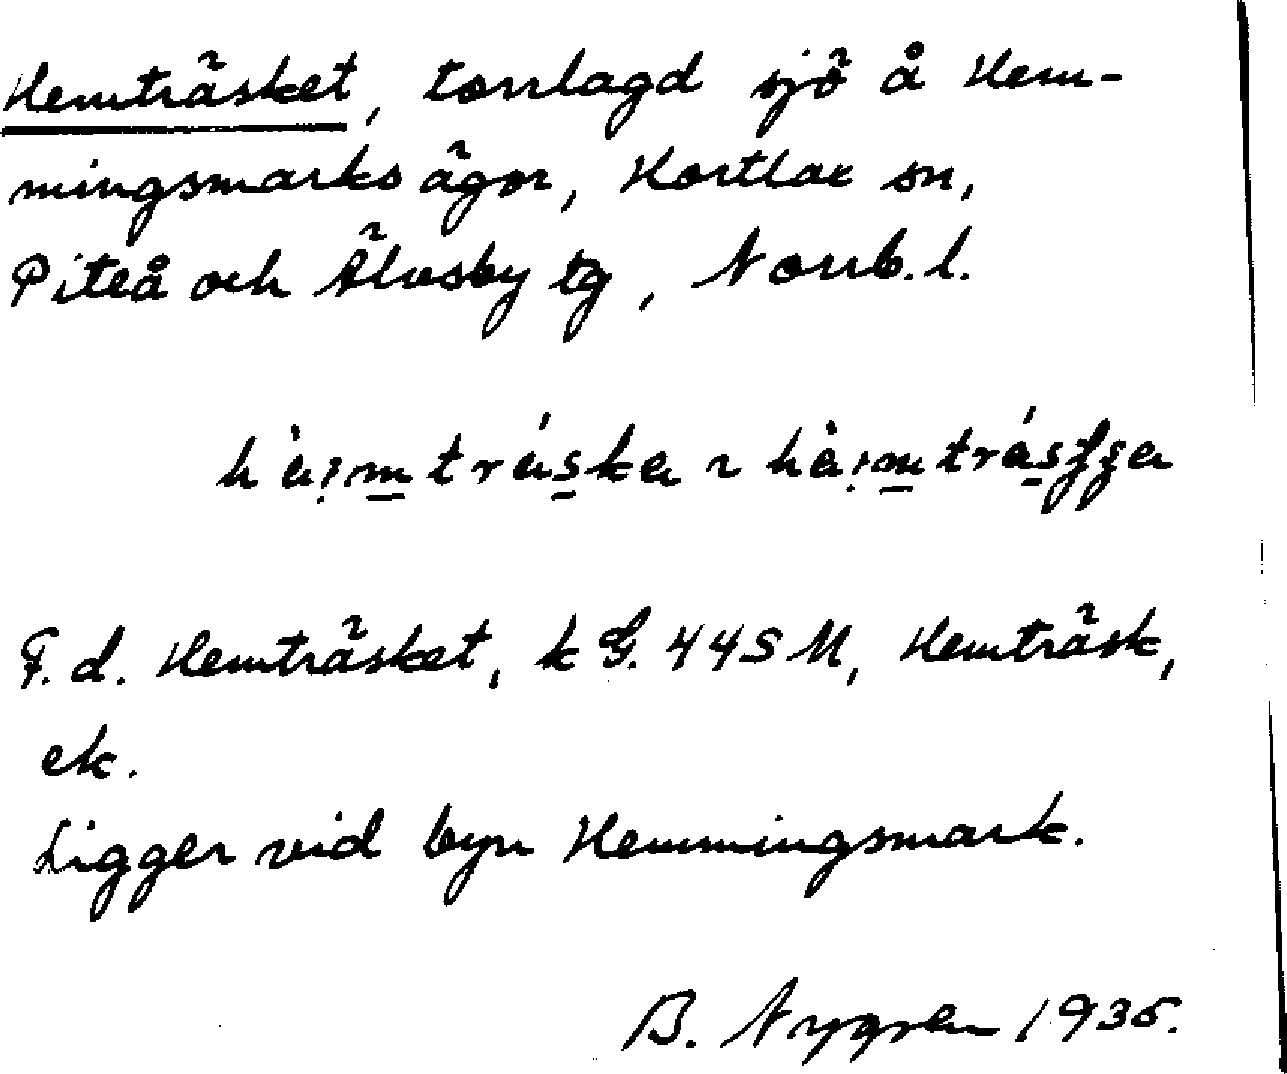 Hemträsket, torrlagd sjö å Hem-
mingsmarks ägor, Hortlax sn,
Piteå och Älvsby tg, Norrb. l.
F.d. Hemträsket, k G. 445 M, Hemträsk,
ek.
Ligger vid byn Hemmingsmark.
B. Nygren 1935.